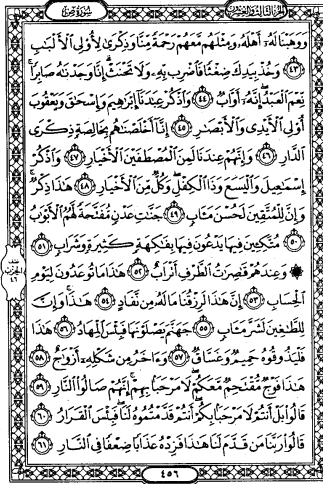 سورة ص الجزء الثالث والعشرون
وَوَهَبْنَا لَهُۥٓ أَهْلَهُۥ وَمِثْلَهُم مَّعَهُمْ رَحْمَةً مِّنَّا وَذِكْرَىٰ لِأُو۟لِى ٱلْأَلْبَـٰبِ
٤٣ وَخُذْ بِيَدِكَ ضِغْثًا فَٱضْرِب بِّهِۦ وَلَا تَحْنَثْ إِنَّا وَجَدْنَـٰهُ صَابِرًا
نِّعْمَ ٱلْعَبْدُ إِنَّهُۥٓ أَوَّابٌ ٤٤ وَٱذْكُرْ عِبَـٰدَنَآ إِبْرَٰهِيمَ وَإِسْحَـٰقَ وَيَعْقُوبَ
أُو۟لِى ٱلْأَيْدِى وَٱلْأَبْصَـٰرِ ٤٥ إِنَّآ أَخْلَصْنَـٰهُم بِخَالِصَةٍ ذِكْرَى
ٱلدَّارِ ٤٦ وَإِنَّهُمْ عِندَنَا لَمِنَ ٱلْمُصْطَفَيْنَ ٱلْأَخْيَارِ ٤٧ وَٱذْكُرْ
إِسْمَـٰعِيلَ وَٱلْيَسَعَ وَذَا ٱلْكِفْلِ وَكُلٌّ مِّنَ ٱلْأَخْيَارِ ٤٨ هَـٰذَا ذِكْرٌ
وَإِنَّ لِلْمُتَّقِينَ لَحُسْنَ مَـَٔابٍ ٤٩ جَنَّـٰتِ عَدْنٍ مُّفَتَّحَةً لَّهُمُ ٱلْأَبْوَٰبُ
٥٠ مُتَّكِـِٔينَ فِيهَا يَدْعُونَ فِيهَا بِفَـٰكِهَةٍ كَثِيرَةٍ وَشَرَابٍ ٥١
۞ وَعِندَهُمْ قَـٰصِرَٰتُ ٱلطَّرْفِ أَتْرَابٌ ٥٢ هَـٰذَا مَا تُوعَدُونَ لِيَوْمِ
ٱلْحِسَابِ ٥٣ إِنَّ هَـٰذَا لَرِزْقُنَا مَا لَهُۥ مِن نَّفَادٍ ٥٤ هَـٰذَا وَإِنَّ
لِلطَّـٰغِينَ لَشَرَّ مَـَٔابٍ ٥٥ جَهَنَّمَ يَصْلَوْنَهَا فَبِئْسَ ٱلْمِهَادُ ٥٦ هَـٰذَا
فَلْيَذُوقُوهُ حَمِيمٌ وَغَسَّاقٌ ٥٧ وَءَاخَرُ مِن شَكْلِهِۦٓ أَزْوَٰجٌ ٥٨
هَـٰذَا فَوْجٌ مُّقْتَحِمٌ مَّعَكُمْ لَا مَرْحَبًۢا بِهِمْ إِنَّهُمْ صَالُوا۟ ٱلنَّارِ ٥٩
قَالُوا۟ بَلْ أَنتُمْ لَا مَرْحَبًۢا بِكُمْ أَنتُمْ قَدَّمْتُمُوهُ لَنَا فَبِئْسَ ٱلْقَرَارُ ٦٠
قَالُوا۟ رَبَّنَا مَن قَدَّمَ لَنَا هَـٰذَا فَزِدْهُ عَذَابًا ضِعْفًا فِى ٱلنَّارِ ٦١
٤٥٦